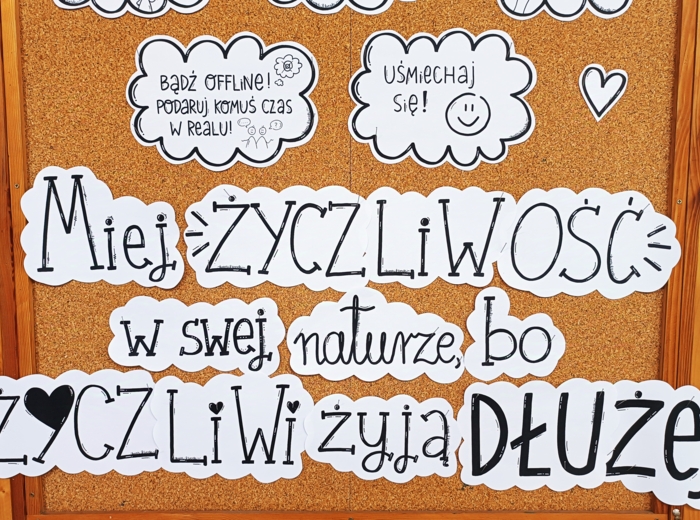 BĄDŹ OFFLINE!
PODARUJ KOMUŚ CZAS
W REALU!
UŚMIECHAJ
SIĘ!
Miej ŻYCZLiWOŚĆ
w swej naturze, bo
ŻYCZLiWi żyją DŁUŻE